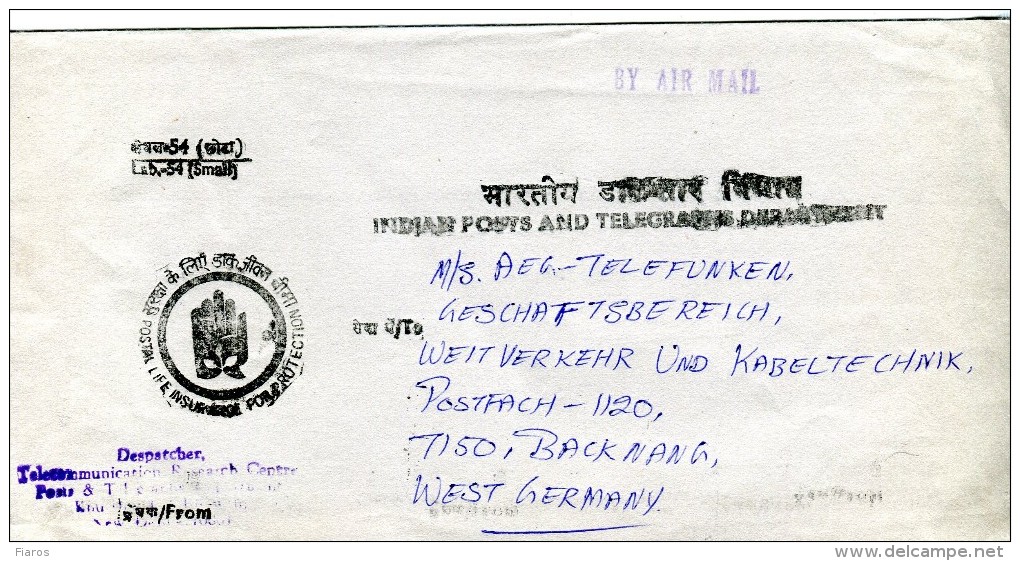 BY AIR MAIL
लेबल-54 (छोटा)
Lab.-54 (Small)
भारतीय डाकतार विभाग
INDIAN POSTS AND TELEGRAPHS DEPARTMENT
सुरक्षा के लिएँ डाक जीवन बीमा
POSTAL LIFE INSURANCE FOR PROTECTION
सेवा में/To
M/S. AEG.-TELEFUNKEN,
GESCHAFTSBEREICH,
WEITVERKEHR UND KABELTECHNIK,
POSTFACH-1120,
7150, BACKNANG,
WEST GERMANY.
Despatcher,
Telecommunication Research Centre
Posts &
/From
Fiaros
www.delcampe.net